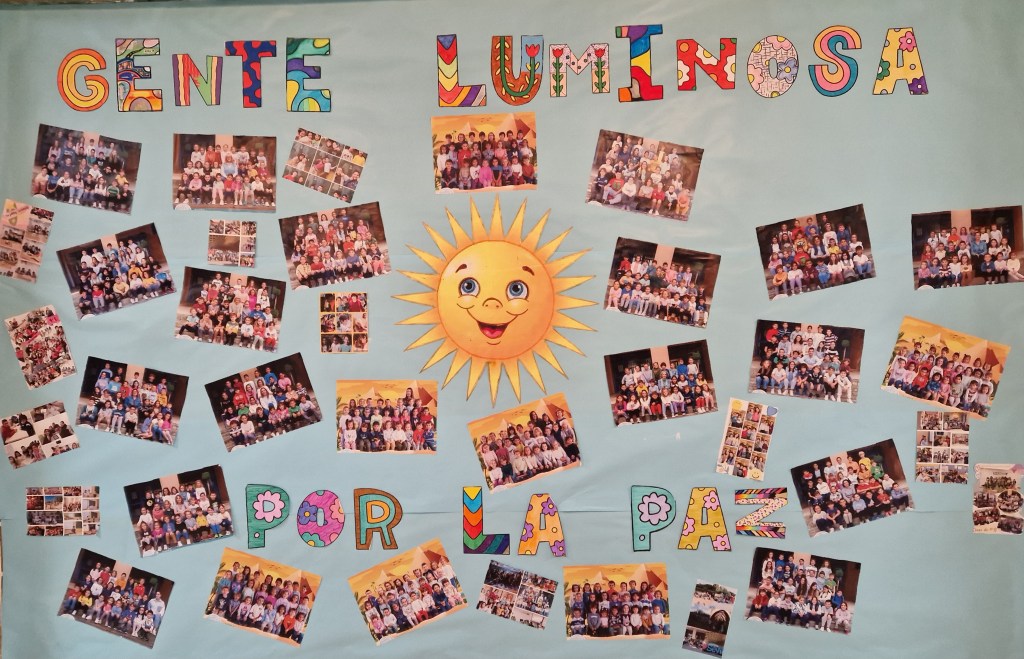 GENTE LUMINOSA
POR LA PAZ